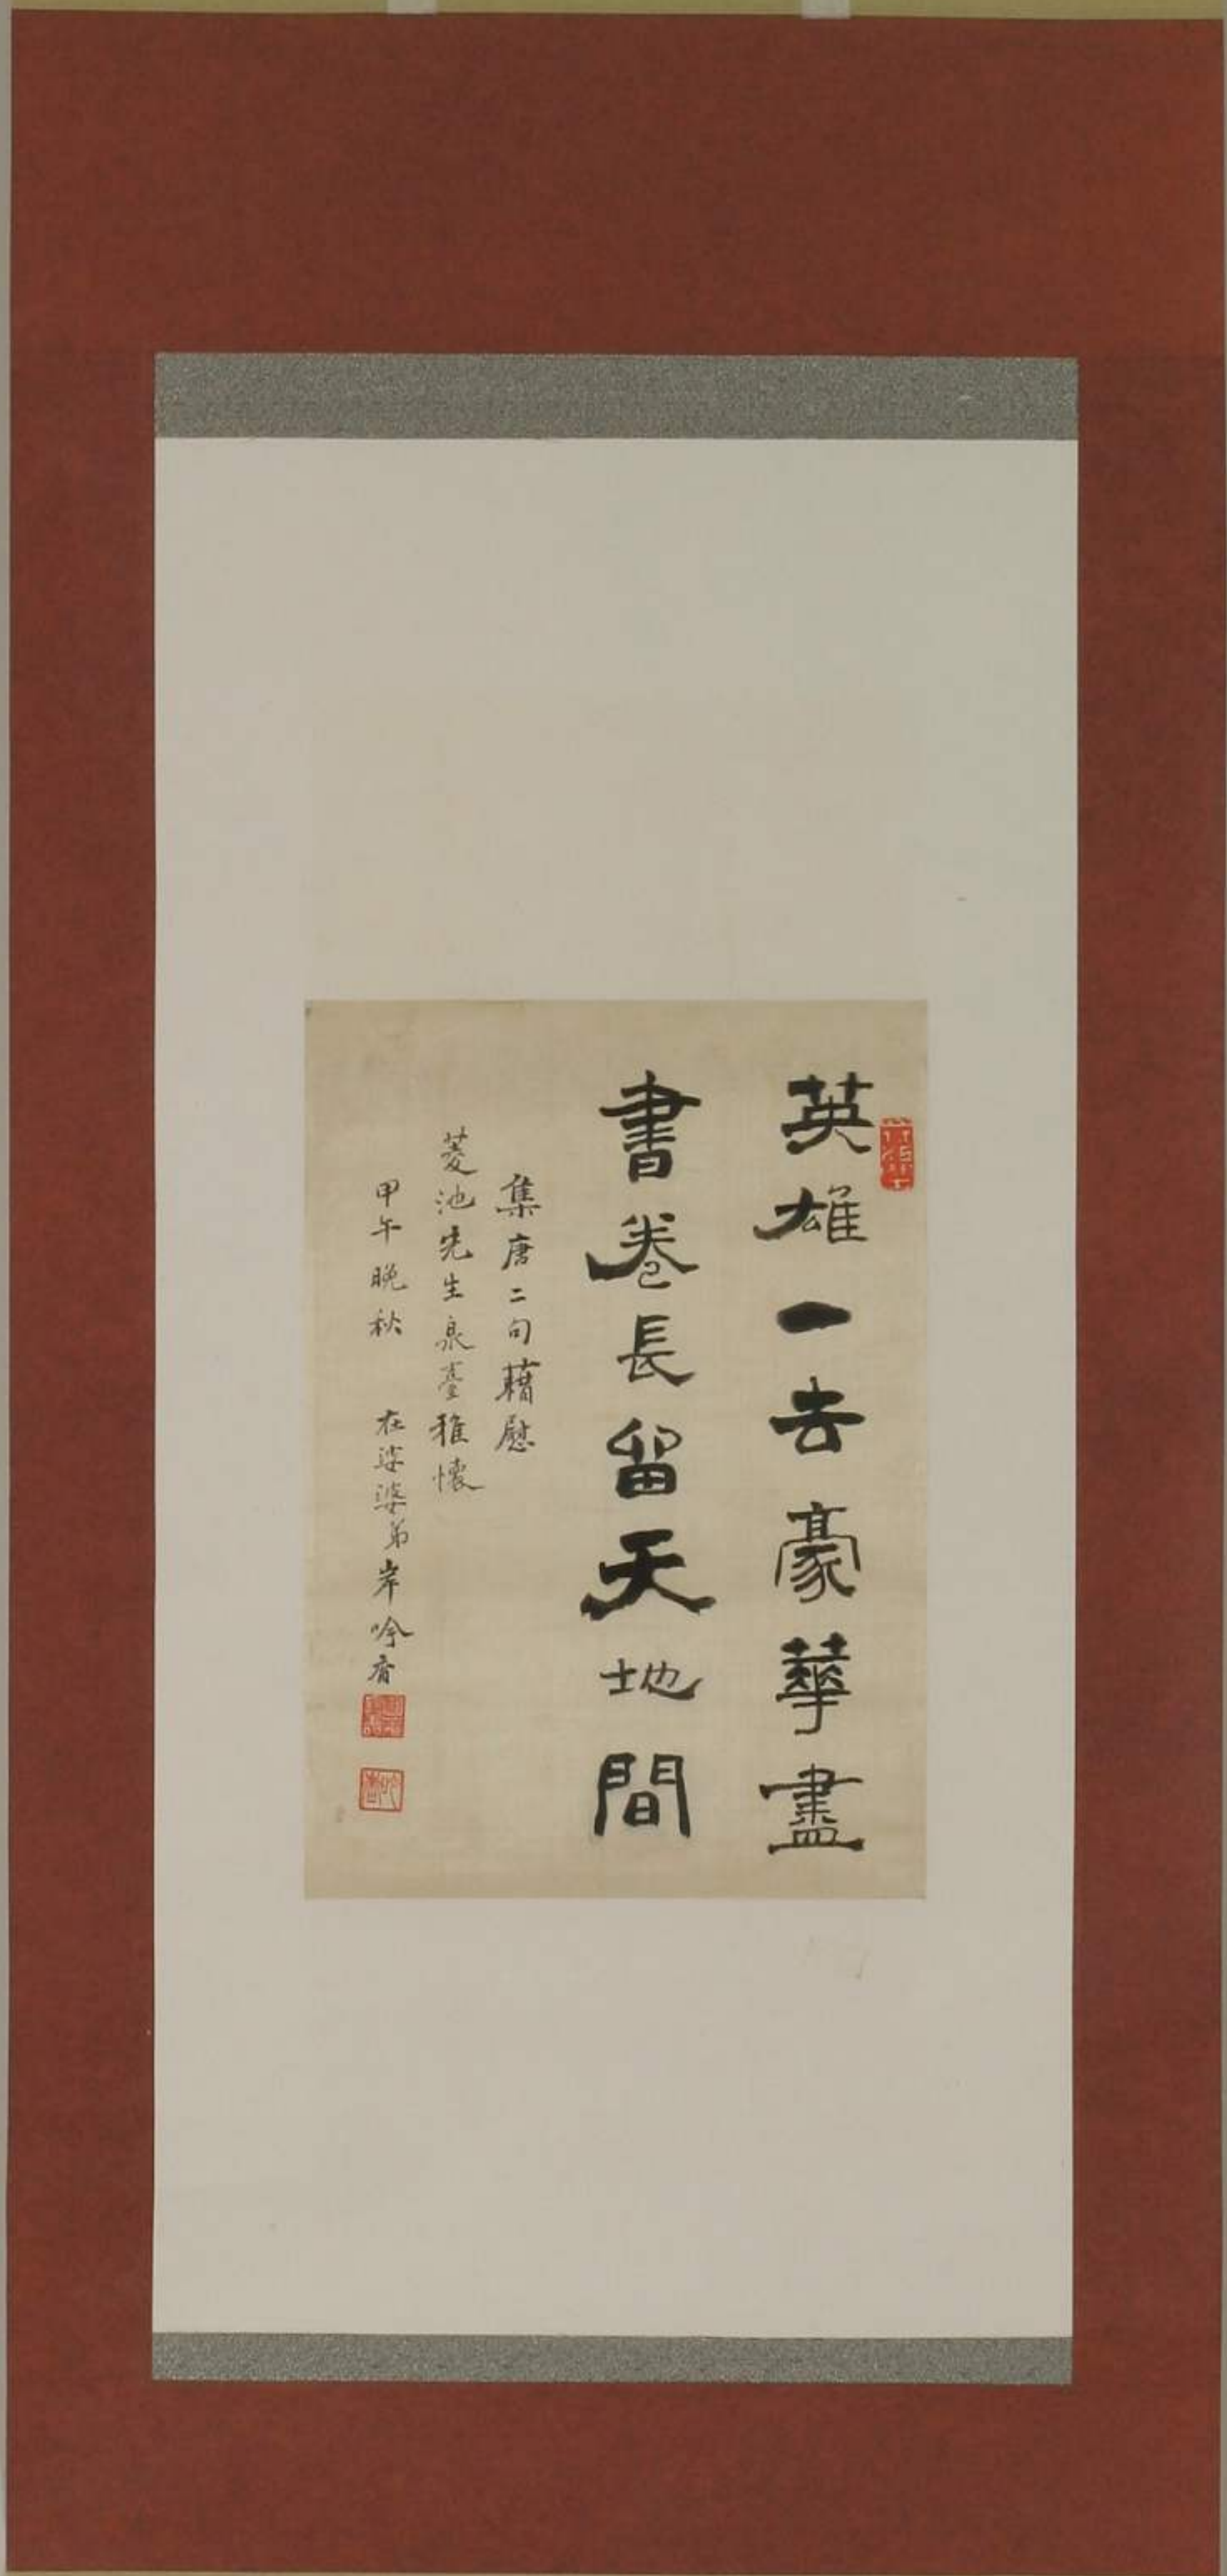 英雄一去豪華盡
書卷長留天地間
集唐二句藉慰
菱池先生泉臺雅懷
甲午晚秋 在娑婆弟岸吟香